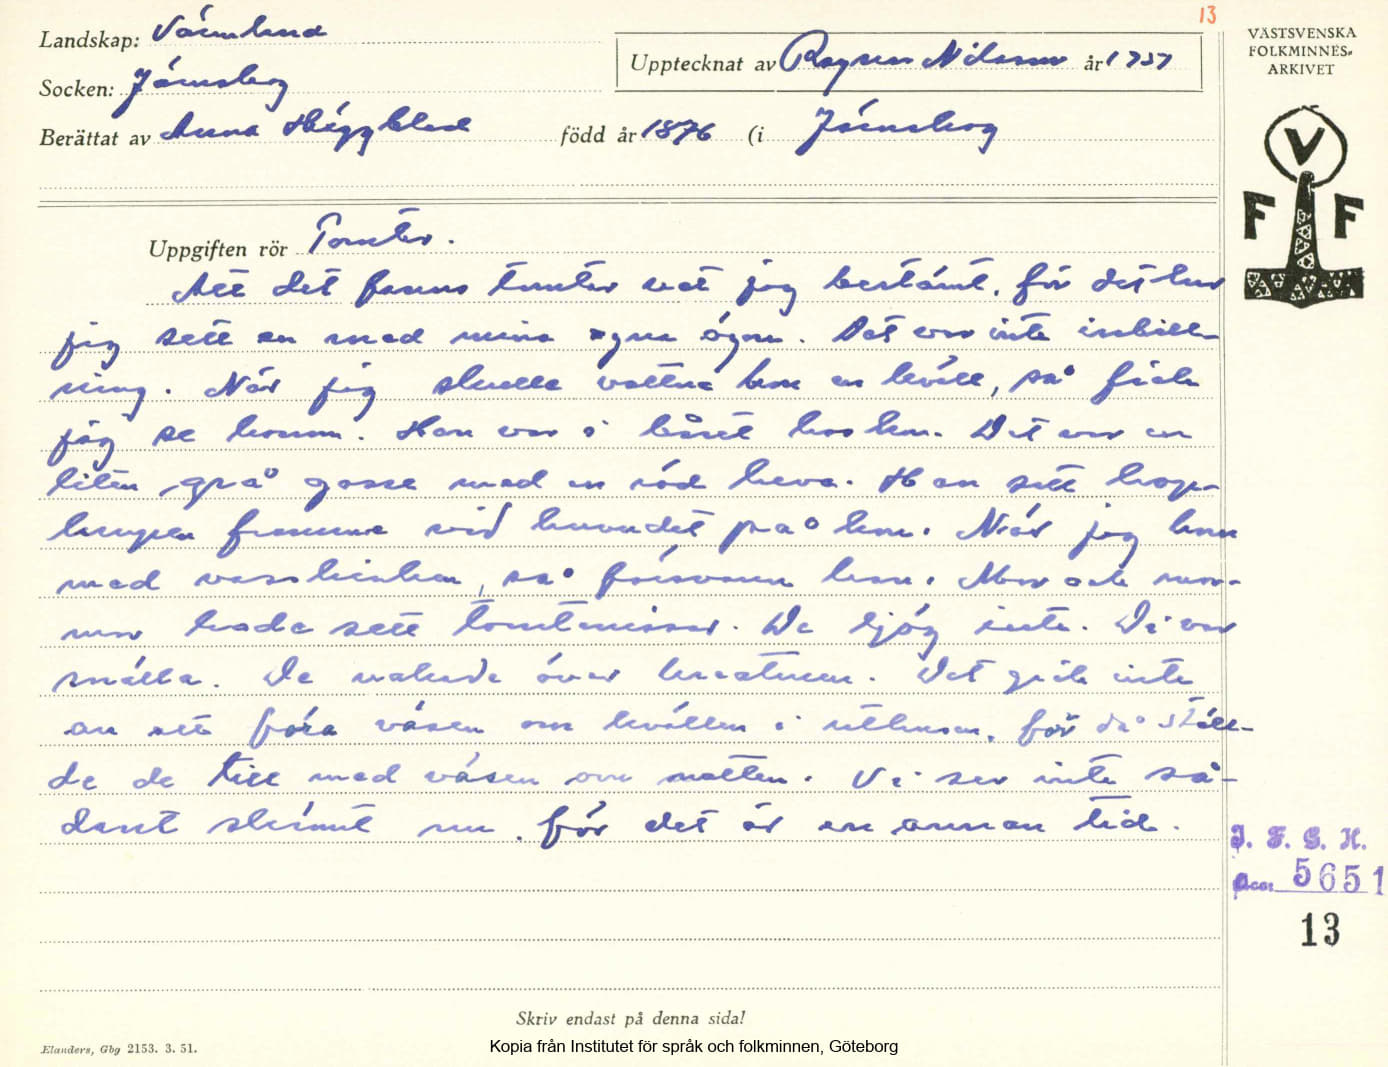 13
Landskap: Värmland
Socken: Järnskog
Upptecknat av Ragnar Nilsson år 1957
Berättat av Anna Häggblad född år 1876 (i Järnskog
VÄSTSVENSKA
FOLKMINNES-
ARKIVET
V
F F
Uppgiften rör Tomter.
Att det fanns tomter vet jag bestämt, för det har
jag sett en med mina egna ögon. Det var inte inbill-
ning. När jag skulle vattna kon en kväll, så fick
jag se honom. Han var i båset hos kon. Det var en
liten grå gosse med en röd luva. Han satt hop-
krupen framme vid huvudet på kon. När jag kom
med vasshinken, så försvann han. Mor och mor-
mor hade sett tomtenissar. De ljög inte. De var
snälla. De vakade över kreaturen. Det gick inte
an att föra väsen om kvällen i uthusen, för då ställ-
de de till med väsen om natten. Vi ser inte så-
dant skämt nu, för det är en annan tid.
I. F. G. H.
Acc: 5651
13
Skriv endast på denna sida!
Elanders, Gbg 2153. 3. 51.
Kopia från Institutet för språk och folkminnen, Göteborg